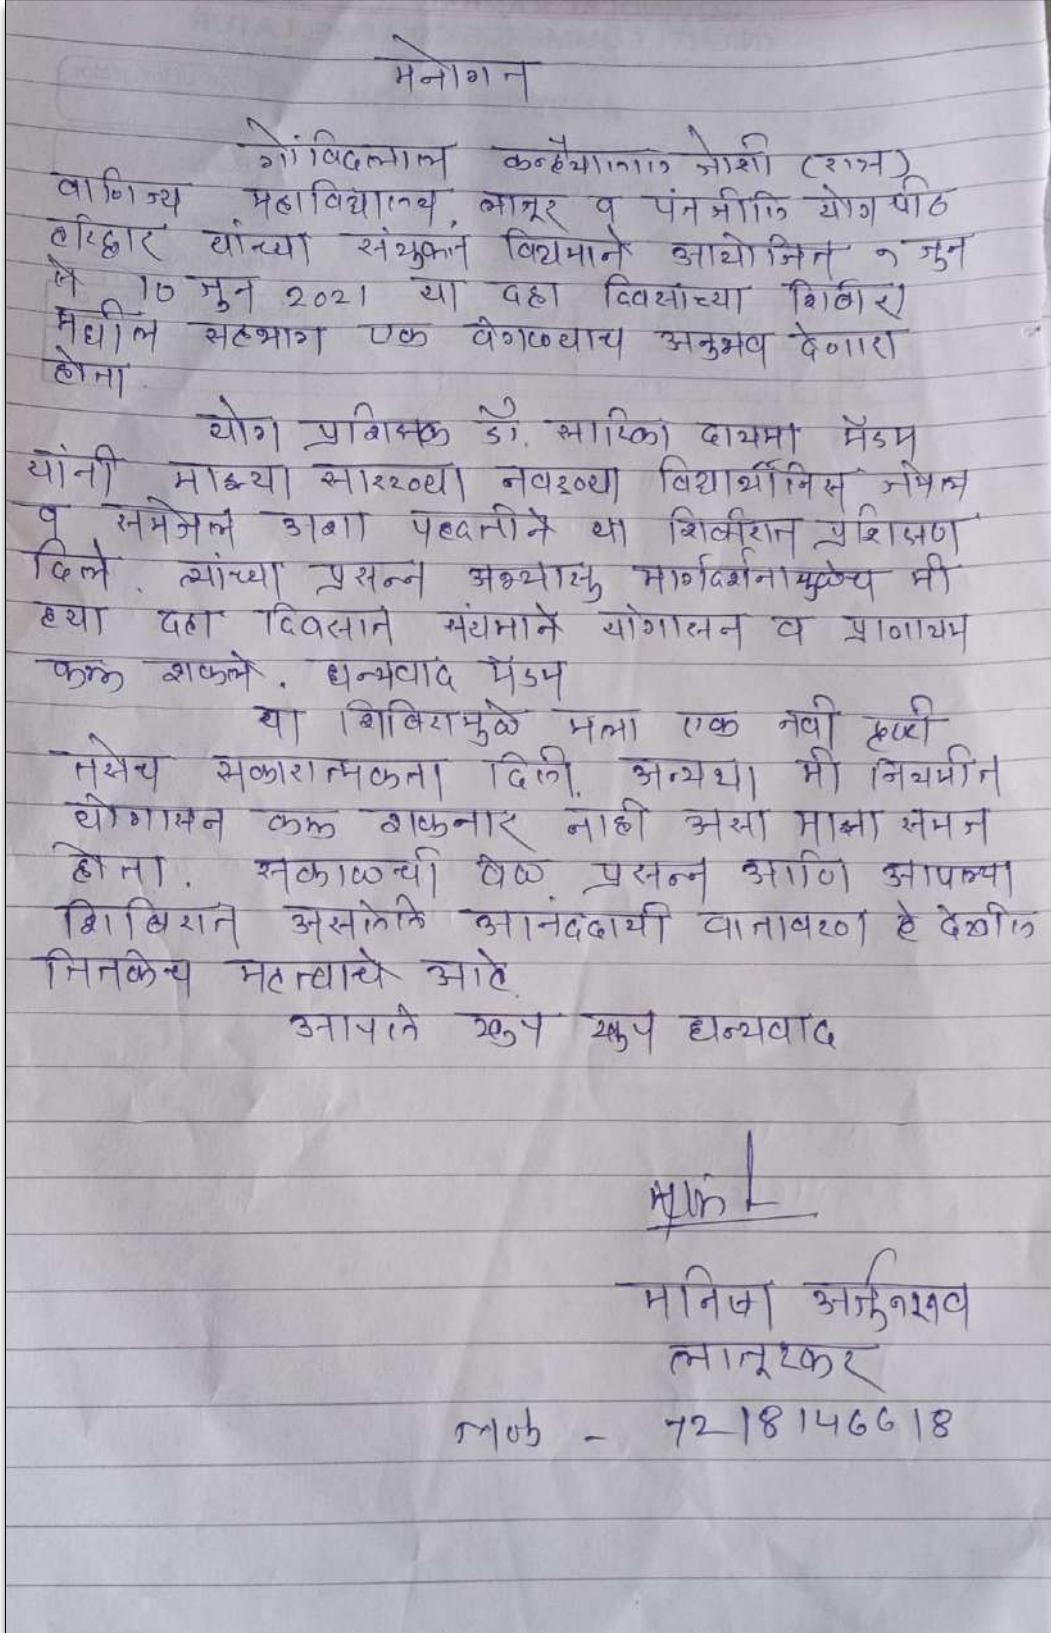 मनोगत
गोविंदलाल कन्हैयालाल जोशी (रात्र)
वाणिज्य महाविद्यालय, लातूर व पंतजीलि योग पीठ
हरिद्वार यांच्या संयुक्त विद्यमाने आयोजित १ जुन
ते 10 जुन 2021 या दहा दिवसाच्या शिबीरा
मधील सहभाग एक वेगळ्याच अनुभव देणारा
होता.
योग प्रशिक्षक डॉ. सारिका दायमा मॅडम
यांनी माझ्या सारख्या नवख्या विद्यार्थीनिस जमेल
व समजेल अशा पद्दतीने या शिबीरात प्रशिक्षण
दिले. त्यांच्या प्रसन्न अभ्यासु मार्गदर्शनामुळेच मी
हया दहा दिवसात संयमाने योगासन व प्राणायम
करू शकले. धन्यवाद मॅडम
या शिबिरामुळे मला एक नवी दृष्टी
तसेच सकारात्मकता दिली. अन्यथा मी नियमीत
योगासन करू शकनार नाही असा माझा समज
होता. सकाळची वेळ प्रसन्न आणि आपल्या
शिबिरात असलेले आनंददायी वातावरण हे देखील
तितकेच महत्वाचे आहे.
आपले खुप खुप धन्यवाद
मनिषा अर्जुनराव
लातूरकर
7218146618